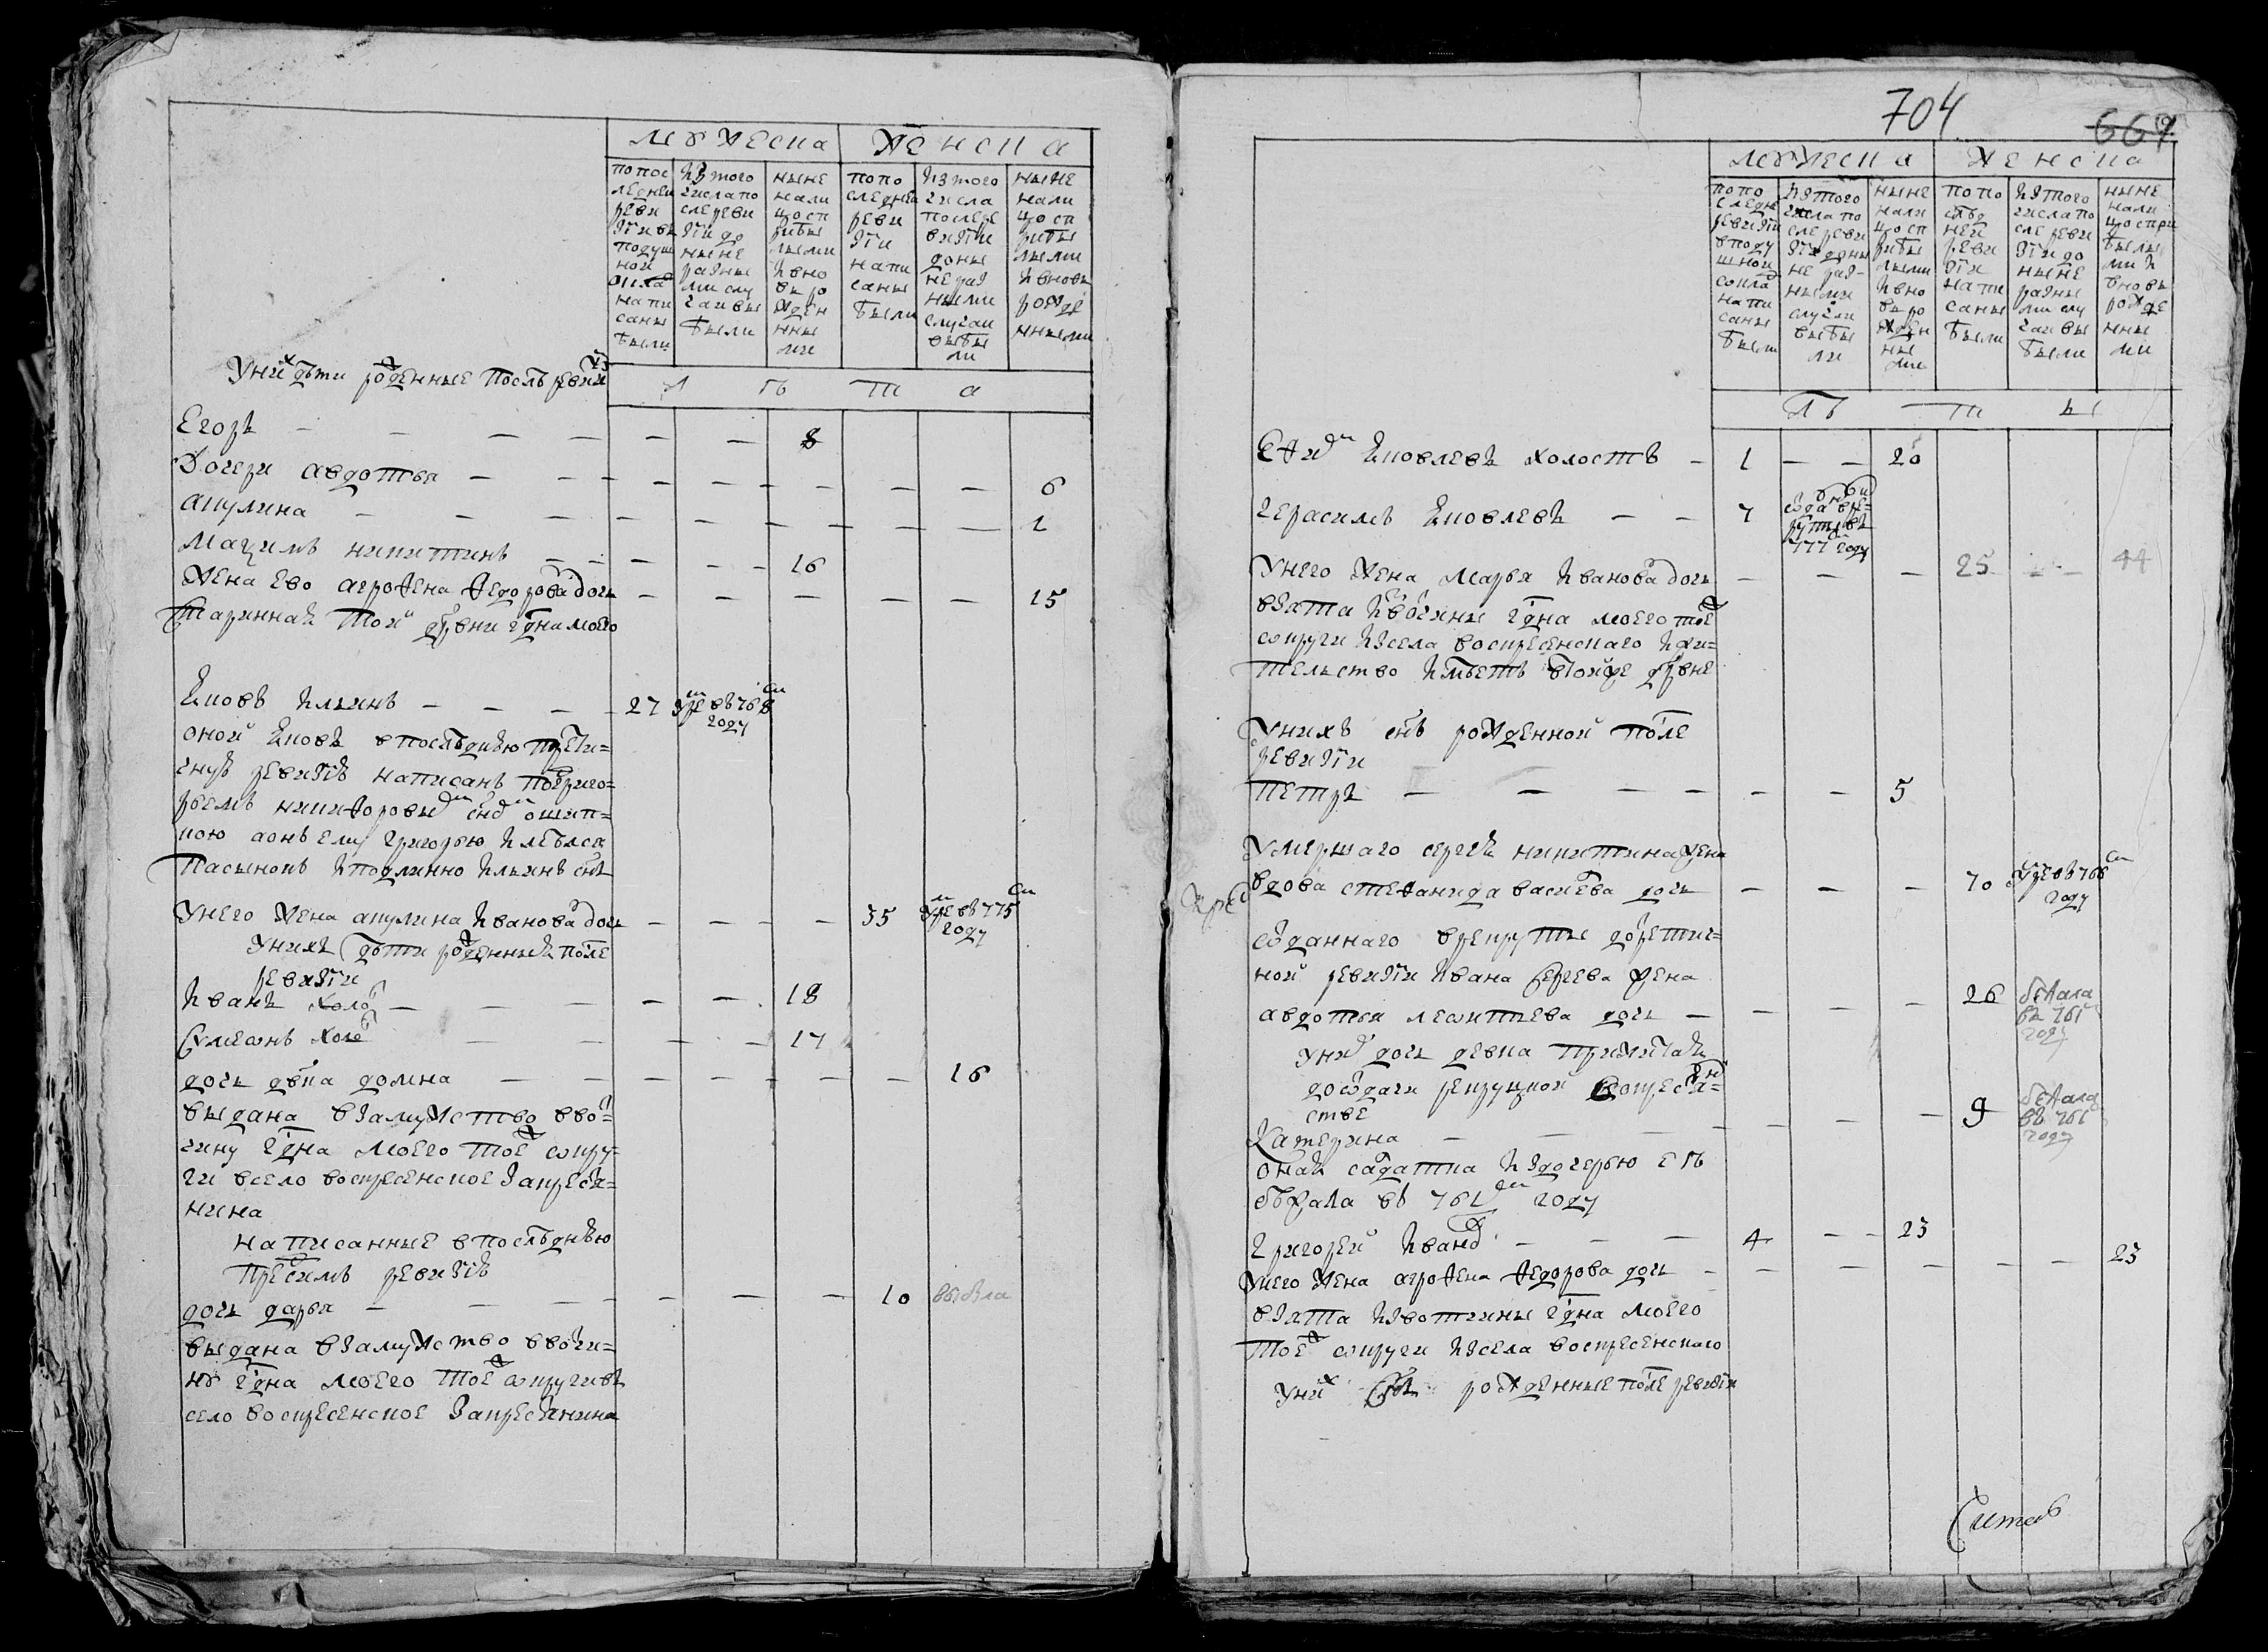 мужеска женска
по пос
ледней
реви
зіи въ
подуш
ной
оклад
напи
саны
были
изъ того
числа по
сле реви
зіи до
ныне
разны
ми слу
чаи вы
были
ныне
нали
цо сп
рибы
лыми
и вно
вь ро
жден
ны
ми
по по
следней
реви
зіи
напи
саны
были
изъ того
числа
после ре
визіи
до ны
не раз
ными
случаи
выбы
ли
ныне
нали
цо сп
рибы
лыми
и вновь
рожде
нными
У них дети рожденные после ревизіи
л ѣ т а
Егоръ — — — — — — 8
Дочери авдотья — — — — — — — — — 6
акулина — — — — — — — — — 1
Максимъ никитинъ — — — — — 16
Жена ево агрофена федорова дочь — — — — — 15
старинная той дрвни гдна моего
Яковъ ильинъ — — — — 27 умре въ 768м
году
оной Яковъ в последнюю прети=
чную ревизію написанъ по григо=
рьемъ никифоровым сном ошип=
кою а онъ ему григорью имеется
пасынокъ и подлинно ильинъ снъ
У него жена акулина иванова дочь — — — 35 умре въ 775м
году
У нихъ дети рожденныя после
ревизіи
иванъ холос — — — — — 18
Симеонъ холос — — — — 17
дочь двка домна — — — — — — — 16
выдана в замужство в вот=
чину гдна моего тое ж супру=
ги в село воскресенское за кресья=
нина
написанные в последнюю
пред симъ ревизію
дочь дарья — — — — — — — 10 выбыла
выдана в замужство в вотчи=
ну гдна моего тое ж супруги въ
село воскресенское за кресьянина
704
667
мужеска женска
по по
следне
ревизіи
в поду
шной
оклад
напи
саны
были
изъ того
числа по
сле реви
зіи до ны
не раз-
ными
случаи
выбы
ли
ныне
нали
цо сп
рибы
лыми
и вно
вь ро
жден
ны
ми
по по
след
ней
реви
зіи
напи
саны
были
изъ того
числа по
сле реви
зіи до
ныне
разны
ми слу
чаи вы
были
ныне
нали
цо спри
былы
ми и
вновь
рожде
нны
ми
лѣ т ы
Ефим Яковлевъ холостъ — 1 — — 20
Герасимъ Яковлевъ — — 7 отдан
в ре=
круты въ
777м году
У него жена марья иванова дочь — — — 25 — — 44
взята из вотчины гдна моего тое ж
супруги из села воскресенского и жи=
тельство имеетъ в той же дрвне
У нихъ снъ рожденной после
ревизіи
петръ — — — — — — 5
Умершаго сергея никитина жена
вдова стефанида васильева дочь — — — 70 умре въ 766м
году
отданнаго в рекруты до претич=
ной ревизіи ивана сергеева жена
авдотья леонтьева дочь — — — — 26 бежала
въ 761
году
У них дочь девка прижитая
до отдачи рекруцкой в кресьян=
стве
Катерина — — — — — — 9 бежала
въ 761
году
оная салдатка и з дочерью ея
бежала въ 761м году
Григорей иванов — — — 4 — — 23
У него жена агрофена федорова дочь — — — — — — 23
взята из вотчины гдна моего
тое ж супруги из села воскресенского
У них рожденные после ревизіи